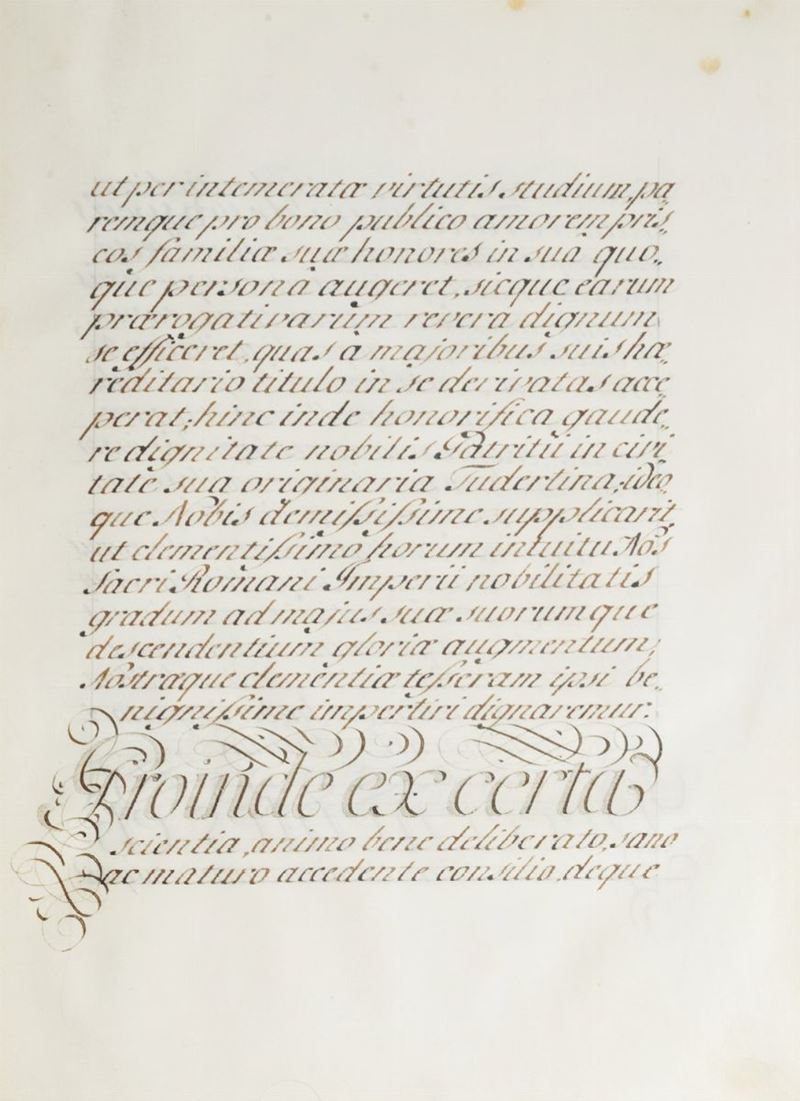 ut per intemeratæ virtutis studium, pa
remque pro bono publico amorem pris,
cos familiæ suæ honores in sua quo,
que persona augeret, sicque earum
prærogativarum revera dignum
se efficeret, quas a majoribus suis hæ,
reditario titulo in se derivatas acce
perat; hinc inde honorifica gaude,
re dignitate nobilis Patritii in civi
tate sua originaria Tudertina, ideo
que Nobis demissisime supplicarit,
ut clementissimo horum intuitu Nos
Sacri Romani Imperii nobilitatis
gradum ad majus suæ suorumque
descendentium gloriæ augmentum,
Nostræque clementiæ tesseram ipsi be,
nignissime impertiri dignaremur.
Proinde ex certa
scientia, animo bene deliberato, sano
ac maturo accedente consilio, deque